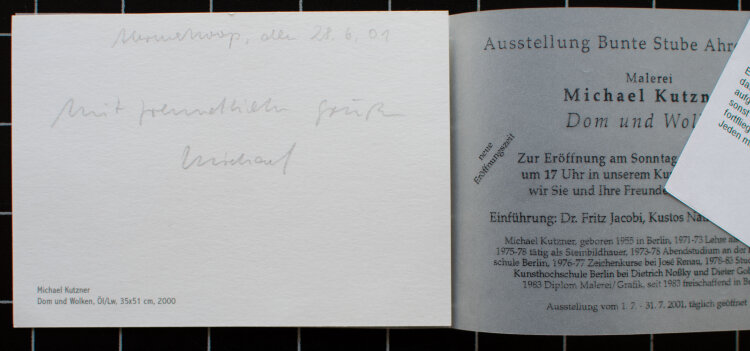 den 28.6.01
Mit freundlichen Grüßen
Michael
Michael Kutzner
Dom und Wolken, Öl/Lw, 35x51 cm, 2000
Ausstellung Bunte Stube Ahr
Malerei
Michael Kutzn
Dom und Wol
neue
Eröffnungszeit
Zur Eröffnung am Sonntag
um 17 Uhr in unserem Ku
wir Sie und Ihre Freunde
Einführung: Dr. Fritz Jacobi, Kustos Na
Michael Kutzner, geboren 1955 in Berlin, 1971-73 Lehre al
1975-78 tätig als Steinbildhauer, 1973-78 Abendstudium an der
schule Berlin, 1976-77 Zeichenkurse bei José Renau, 1978-83 Stu
Kunsthochschule Berlin bei Dietrich Noßky und Dieter Go
1983 Diplom Malerei/Grafik, seit 1983 freischaffend in B
Ausstellung vom 1. 7. - 31. 7. 2001, täglich geöffnet
E
da
aufg
sonst
fortflieg
Jeden m